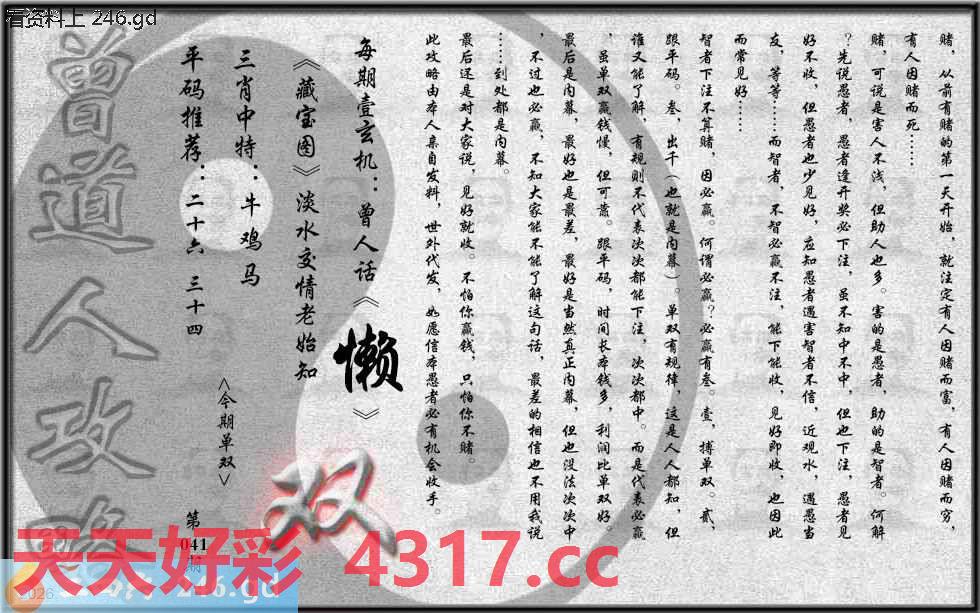 看资料上 246.gd
赌，从前有赌的第一天开始，就注定有人因赌而富，有人因赌而穷，
有人因赌而死……
赌，可说是害人不浅，但助人也多。害的是愚者，助的是智者。何解
？先说愚者，愚者逢开奖必下注，虽不知中不中，但也下注，愚者见
好不收，但愚者也少见好，应知愚者遇害智者不信，近观水，遇愚当
友，等等……而智者，不智必赢不注，能下能收，见好即收，也因此
而常见好……
智者下注不算赌，因必赢。何谓必赢？必赢有叁。壹，搏单双。贰，
跟平码。叁，出千（也就是内幕）。单双有规律，这是人人都知，但
谁又能了解，有规则不代表次次都能下注，次次都中。而是代表必赢
，虽单双赢钱慢，但可靠。跟平码，时间长本钱多，利润比单双好。
最后是内幕，最好也是最差，最好是当然真正内幕，但也没法次次中
，不过也必赢，不知大家能不能了解这句话，最差的相信也不用我说
……到处都是内幕。
最后还是对大家说，见好就收。不怕你赢钱，只怕你不赌。
此攻略由本人亲自发料，世外代发，如愿信本愚者必有机会收手。
每期壹玄机：曾人话《懒》
《藏宝图》淡水交情老始知
三肖中特：牛 鸡 马
平码推荐：二十六 三十四
<今期单双>
双
第
041
期
曾道人攻略
天天好彩 4317.cc
246.gd
2026